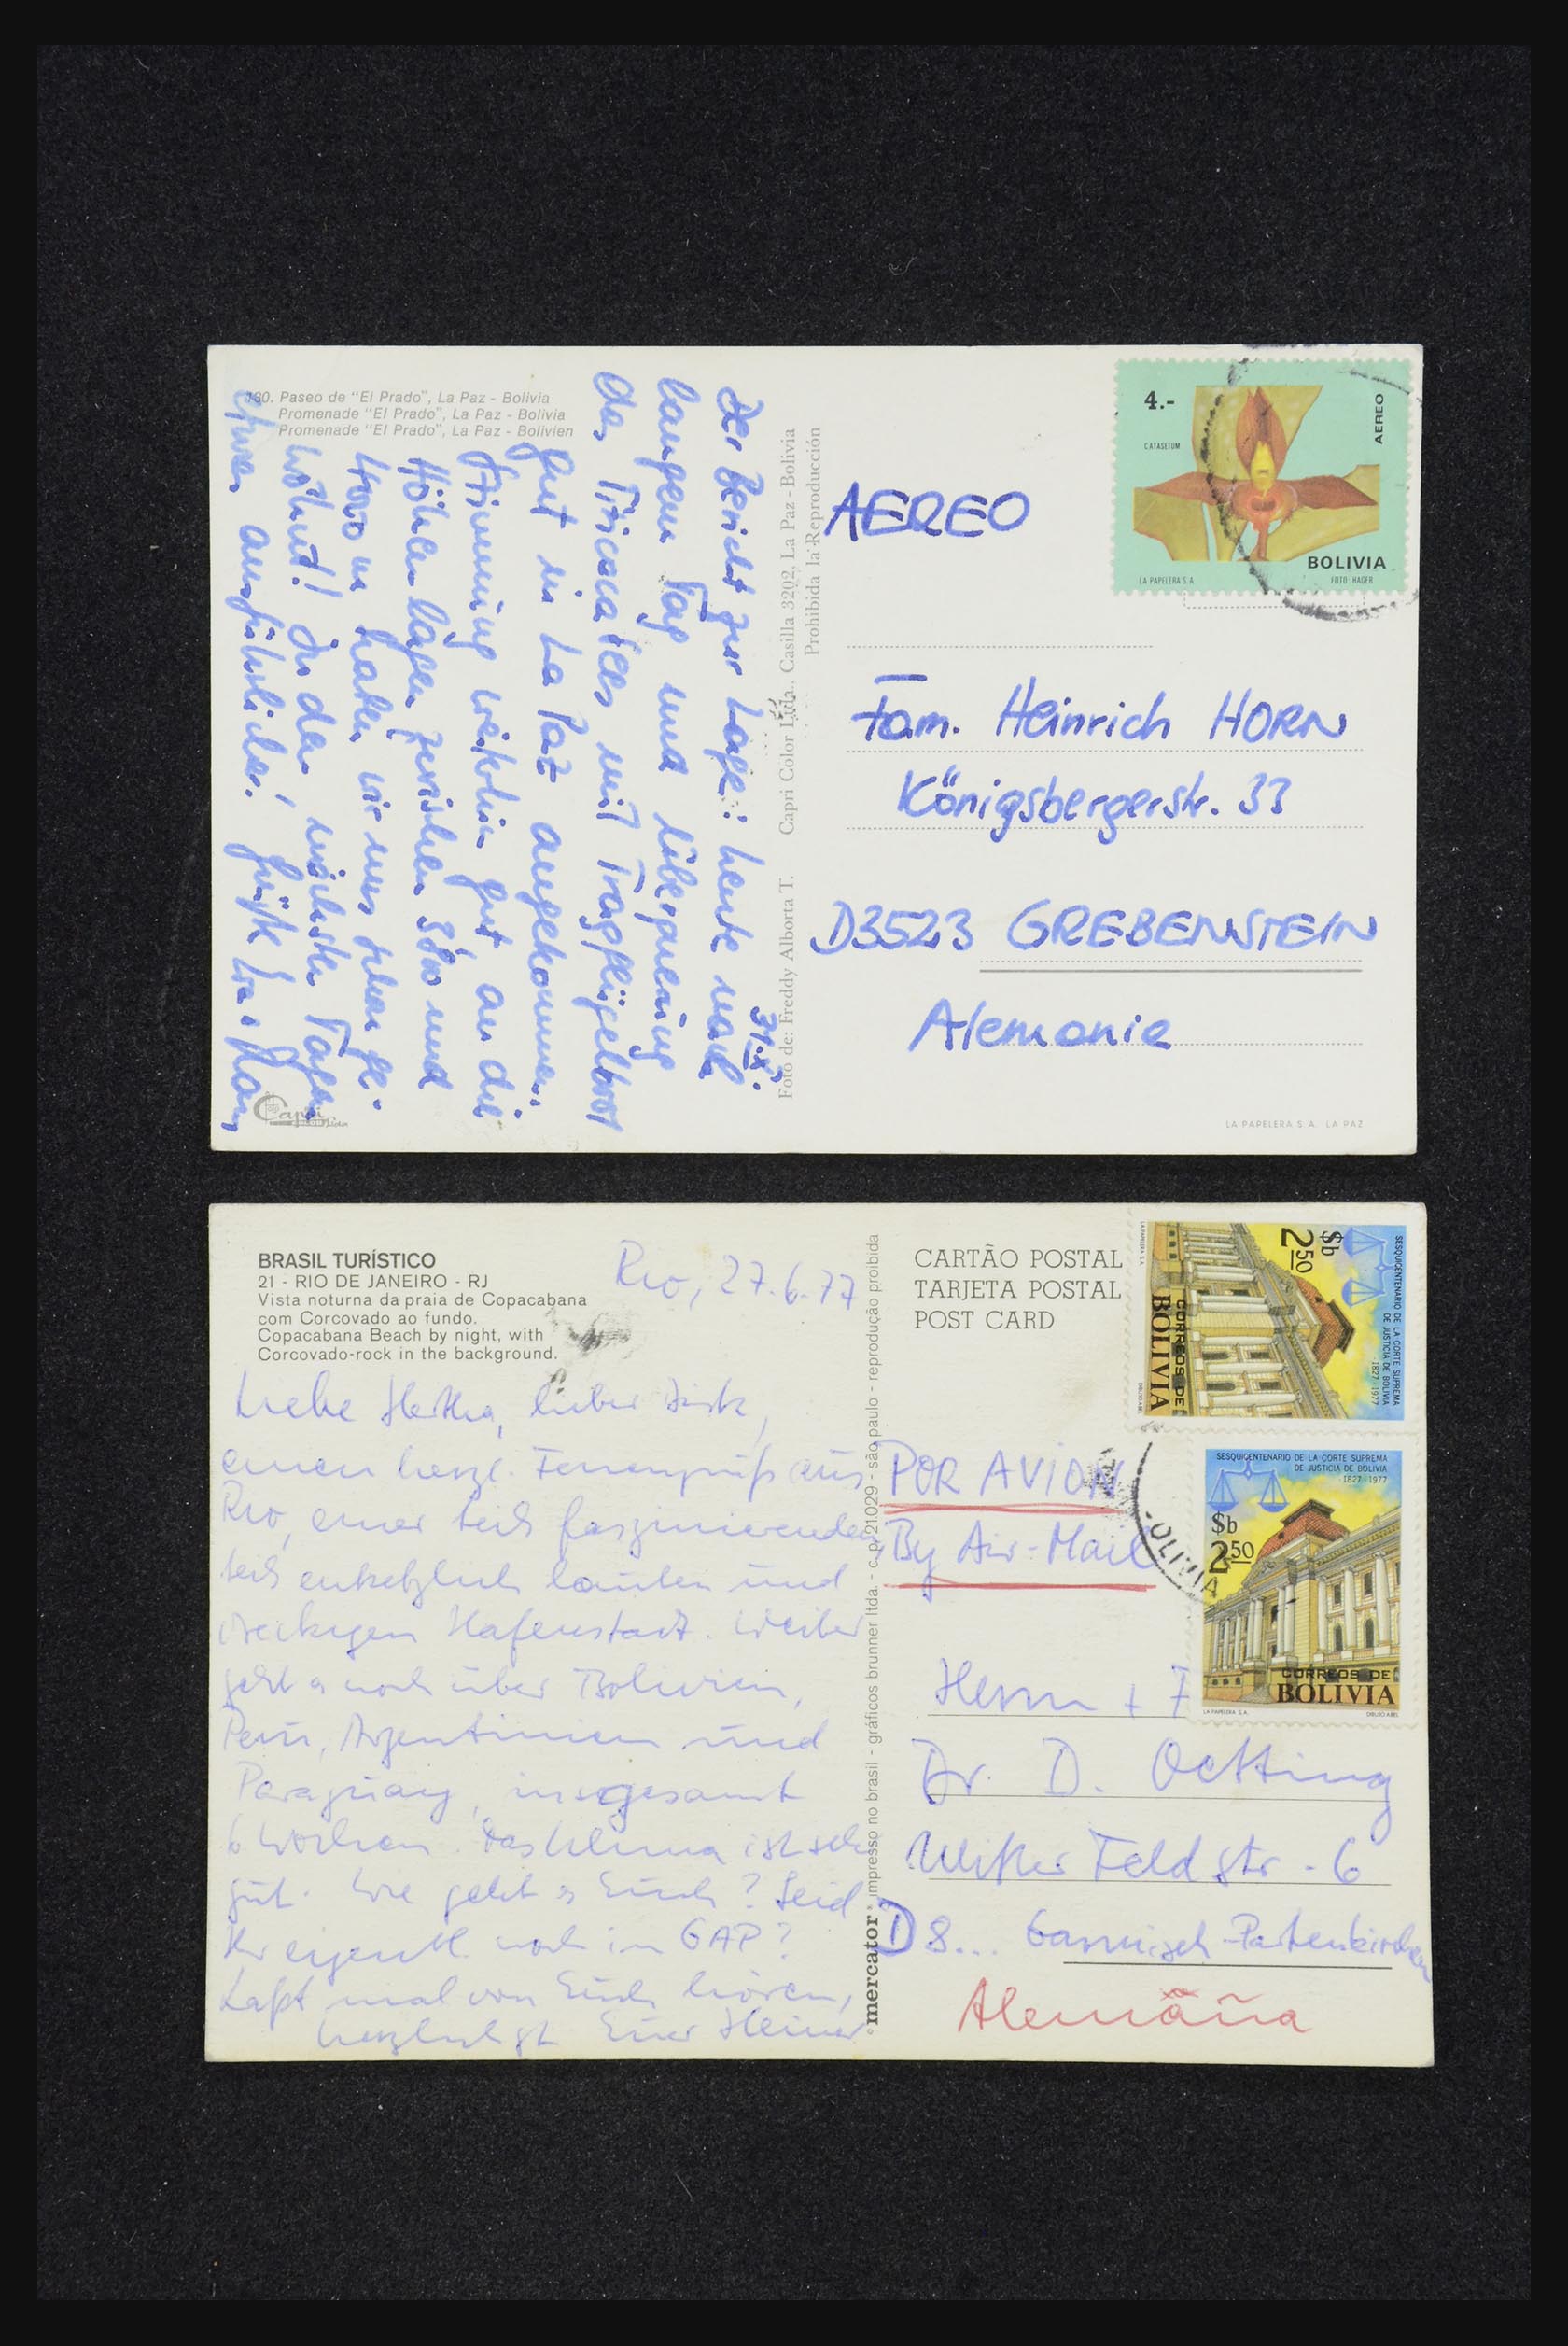 180. Paseo de "El Prado", La Paz - Bolivia
Promenade "El Prado", La Paz - Bolivia
Promenade "El Prado", La Paz - Bolivien
31.X.
Der Bericht zur Lage: heute nach
langem Tag und Überquerung
des Titicacasees mit Tragflügelboot
gut in La Paz angekommen.
Stimmung weiterhin gut, an die
Höhenlagen zwischen 3800 und
4000 m haben wir uns schon ge-
wöhnt! In den nächsten Tagen
etwas ausführlicher! Grüße
Capri
Foto de: Freddy Alborta T. Capri Color Ltda., Casilla 3202, La Paz - Bolivia
Prohibida la Reproducción
AEREO
4.-
CATASETUM
AEREO
BOLIVIA
LA PAPELERA S.A.
FOTO: HAGER
Fam. Heinrich HORN
Königsbergerstr. 33
D3523 GREBENSTEIN
Alemania
LA PAPELERA S.A. LA PAZ
BRASIL TURÍSTICO
21 - RIO DE JANEIRO - RJ
Vista noturna da praia de Copacabana
com Corcovado ao fundo.
Copacabana Beach by night, with
Corcovado-rock in the background.
Rio, 27.6.77
Liebe Hertha, lieber Dirk,
einen herzl. Feriengruß aus
Rio, einer teils faszinierenden,
teils entsetzlich lauten und
dreckigen Hafenstadt. Weiter
geht's noch über Bolivien,
Perú, Argentinien und
Paraguay, insgesamt
6 Wochen. Das Klima ist sehr
gut. Wie geht's Euch? Seid
Ihr eigentl. noch in GAP?
Laßt mal von Euch hören,
herzlichst Euer Heiner
mercator impresso no brasil - gráficos brunner ltda. - c. p. 21.029 - são paulo - reprodução proibida
CARTÃO POSTAL
TARJETA POSTAL
POST CARD
SESQUICENTENARIO DE LA CORTE SUPREMA
DE JUSTICIA DE BOLIVIA
1827-1977
$b
2.50
CORREOS DE
BOLIVIA
LA PAPELERA S.A.
DIBUJO ABEL
POR AVION
By Air-Mail
OLIVIA
SESQUICENTENARIO DE LA CORTE SUPREMA
DE JUSTICIA DE BOLIVIA
1827-1977
$b
2.50
CORREOS DE
BOLIVIA
LA PAPELERA S.A.
DIBUJO ABEL
Herrn + F
Dr. D. Oetting
Feldstr. 6
D 8... Garmisch-Partenkirchen
Alemaña